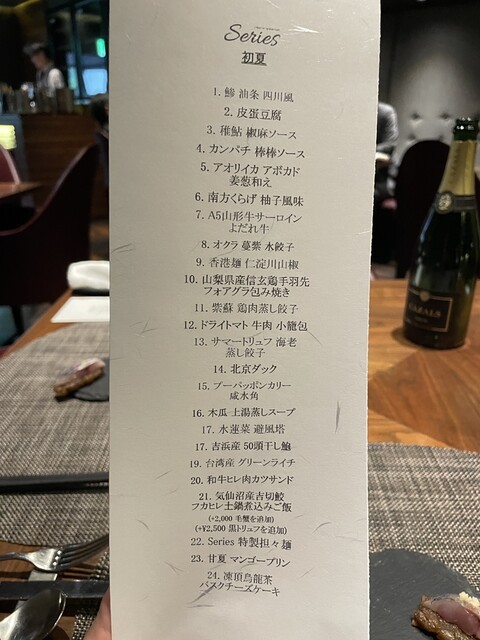 Series
初夏
1. 鯵 油条 四川風
2. 皮蛋豆腐
3. 稚鮎 椒麻ソース
4. カンパチ 棒棒ソース
5. アオリイカ アボカド
姜葱和え
6. 南方くらげ 柚子風味
7. A5山形牛サーロイン
よだれ牛
8. オクラ 蔓紫 水餃子
9. 香港麺 仁淀川山椒
10. 山梨県産信玄鶏手羽先
フォアグラ包み焼き
11. 紫蘇 鶏肉蒸し餃子
12. ドライトマト 牛肉 小籠包
13. サマートリュフ 海老
蒸し餃子
14. 北京ダック
15. プーパッポンカリー
咸水角
16. 木瓜 上湯蒸しスープ
17. 水蓮菜 避風塔
17. 吉浜産 50頭干し鮑
19. 台湾産 グリーンライチ
20. 和牛ヒレ肉カツサンド
21. 気仙沼産吉切鮫
フカヒレ土鍋煮込みご飯
(+2,000 毛蟹を追加)
(+¥2,500 黒トリュフを追加)
22. Series 特製担々麺
23. 甘夏 マンゴープリン
24. 凍頂烏龍茶
バスクチーズケーキ